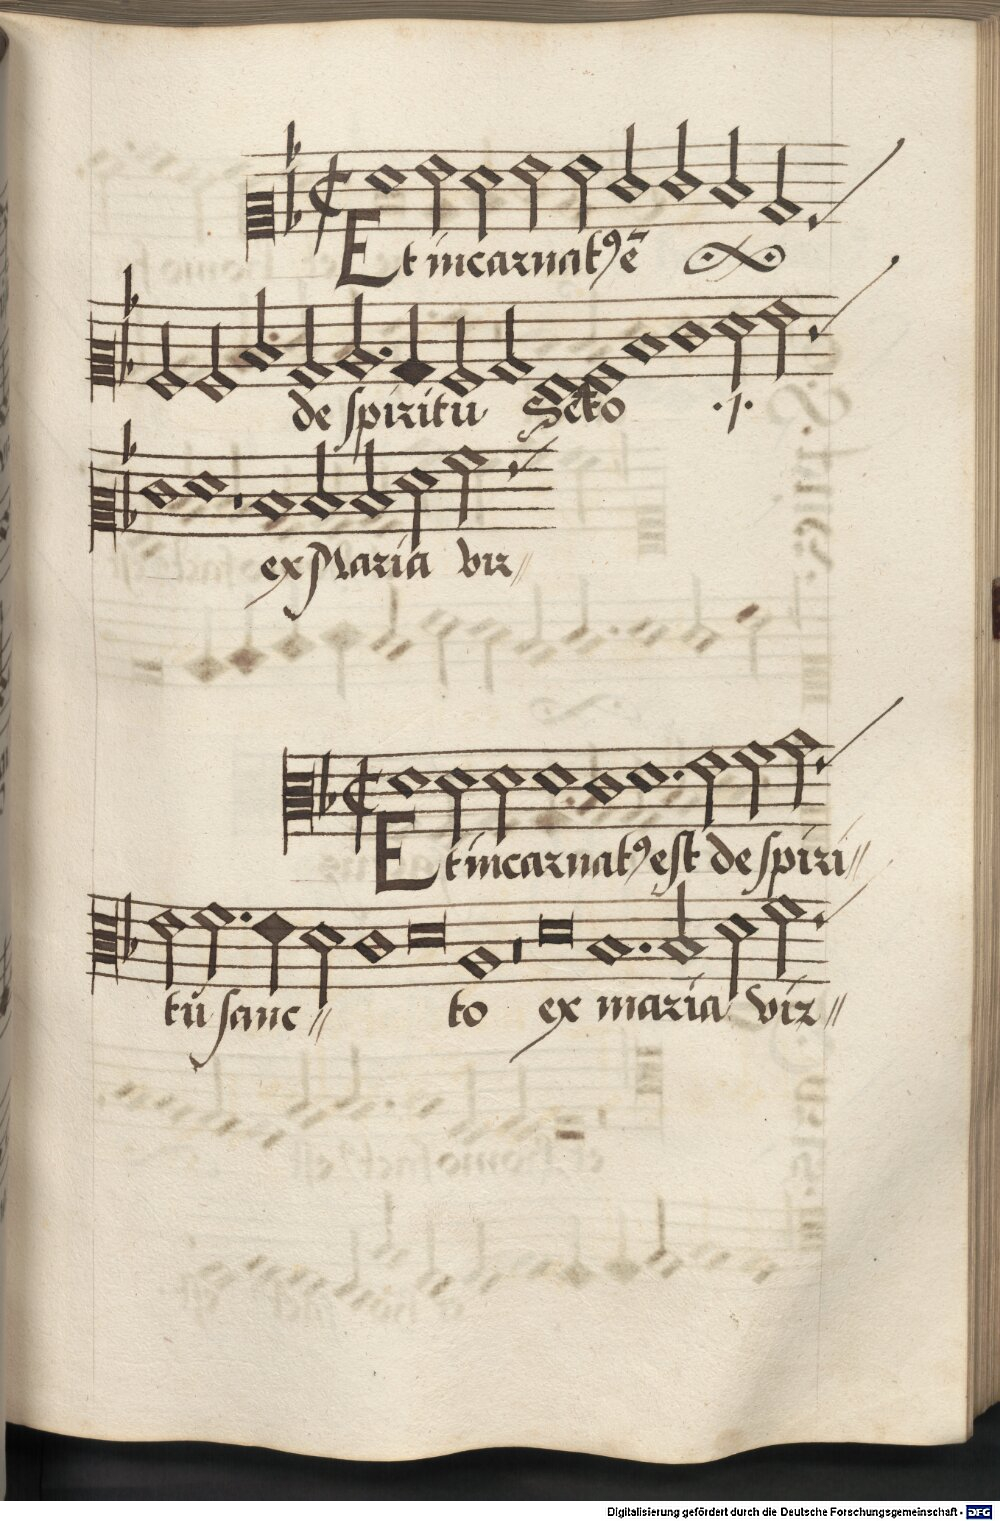 Et incarnatꝰ ē
de spiritu Scto ·/·
ex Maria vir//
Et incarnatꝰ est de spiri//
tu sanc// to ex maria vir//
Digitalisierung gefördert durch die Deutsche Forschungsgemeinschaft - DFG